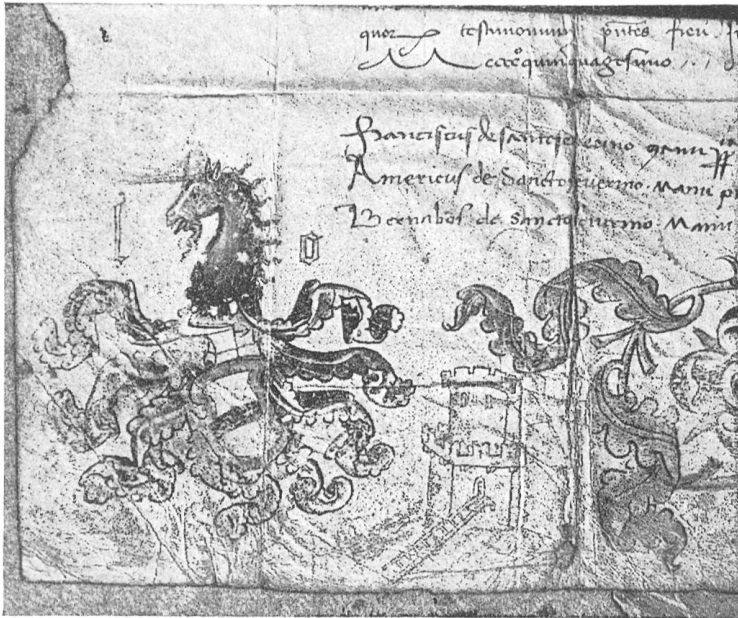 quor testimonium pntes fieri
Mcccc°quinquagesimo
Franciscus de sancto severino manu
Americus de Sanctoseverino. Manu
Bernabos de Sanctoseverino. Manu